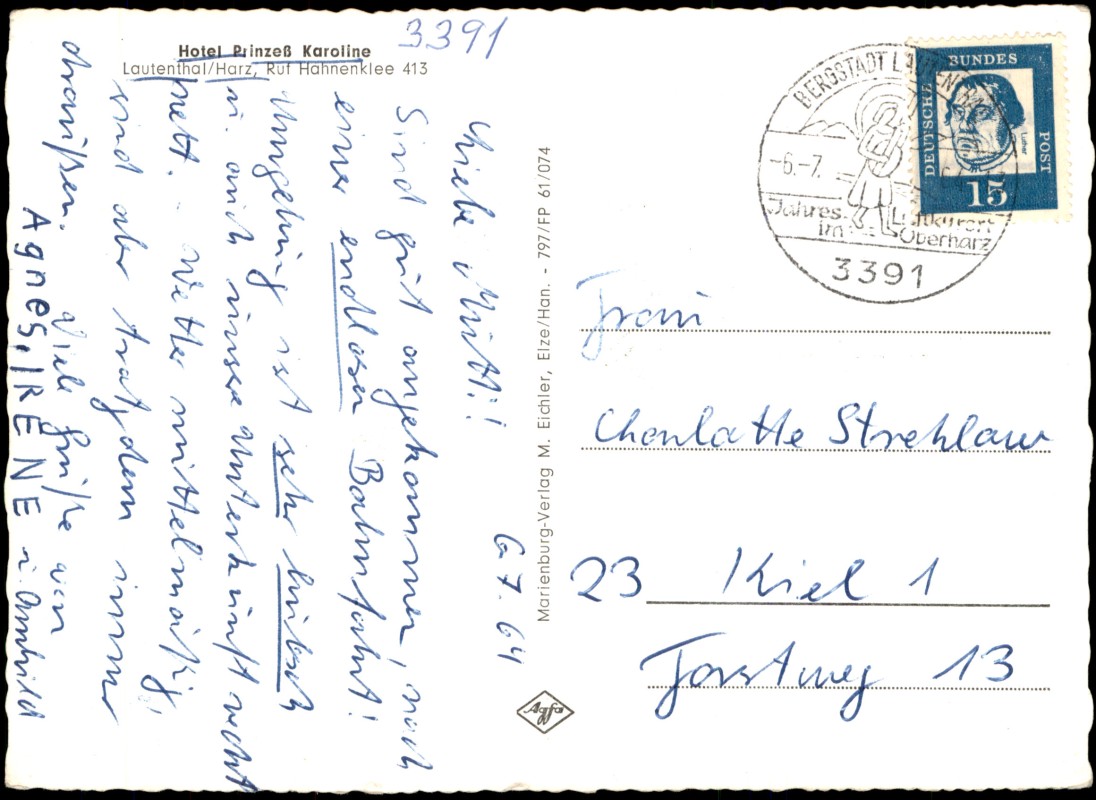 Hotel Prinzeß Karoline
Lautenthal/Harz, Ruf Hahnenklee 413
3391
6.7.64
Liebe Mutti!
Sind gut angekommen, nach
einer endlosen Bahnfahrt!
Umgebung ist sehr hübsch
u. auch unsere Unterkunft recht
nett. - Wetter mittelmäßig,
sind aber trotzdem immer
draußen. Viele Grüße von
Agnes, IRENE u. Armhild
Marienburg-Verlag M. Eichler, Elze/Han. - 797/FP 61/074
Agfa
BERGSTADT LAUTENTHAL
-6.-7.
Jahres- Luftkurort
im Oberharz
3391
DEUTSCHE BUNDES POST
Luther
15
Frau
Charlotte Strehlow
23 Kiel 1
Forstweg 13